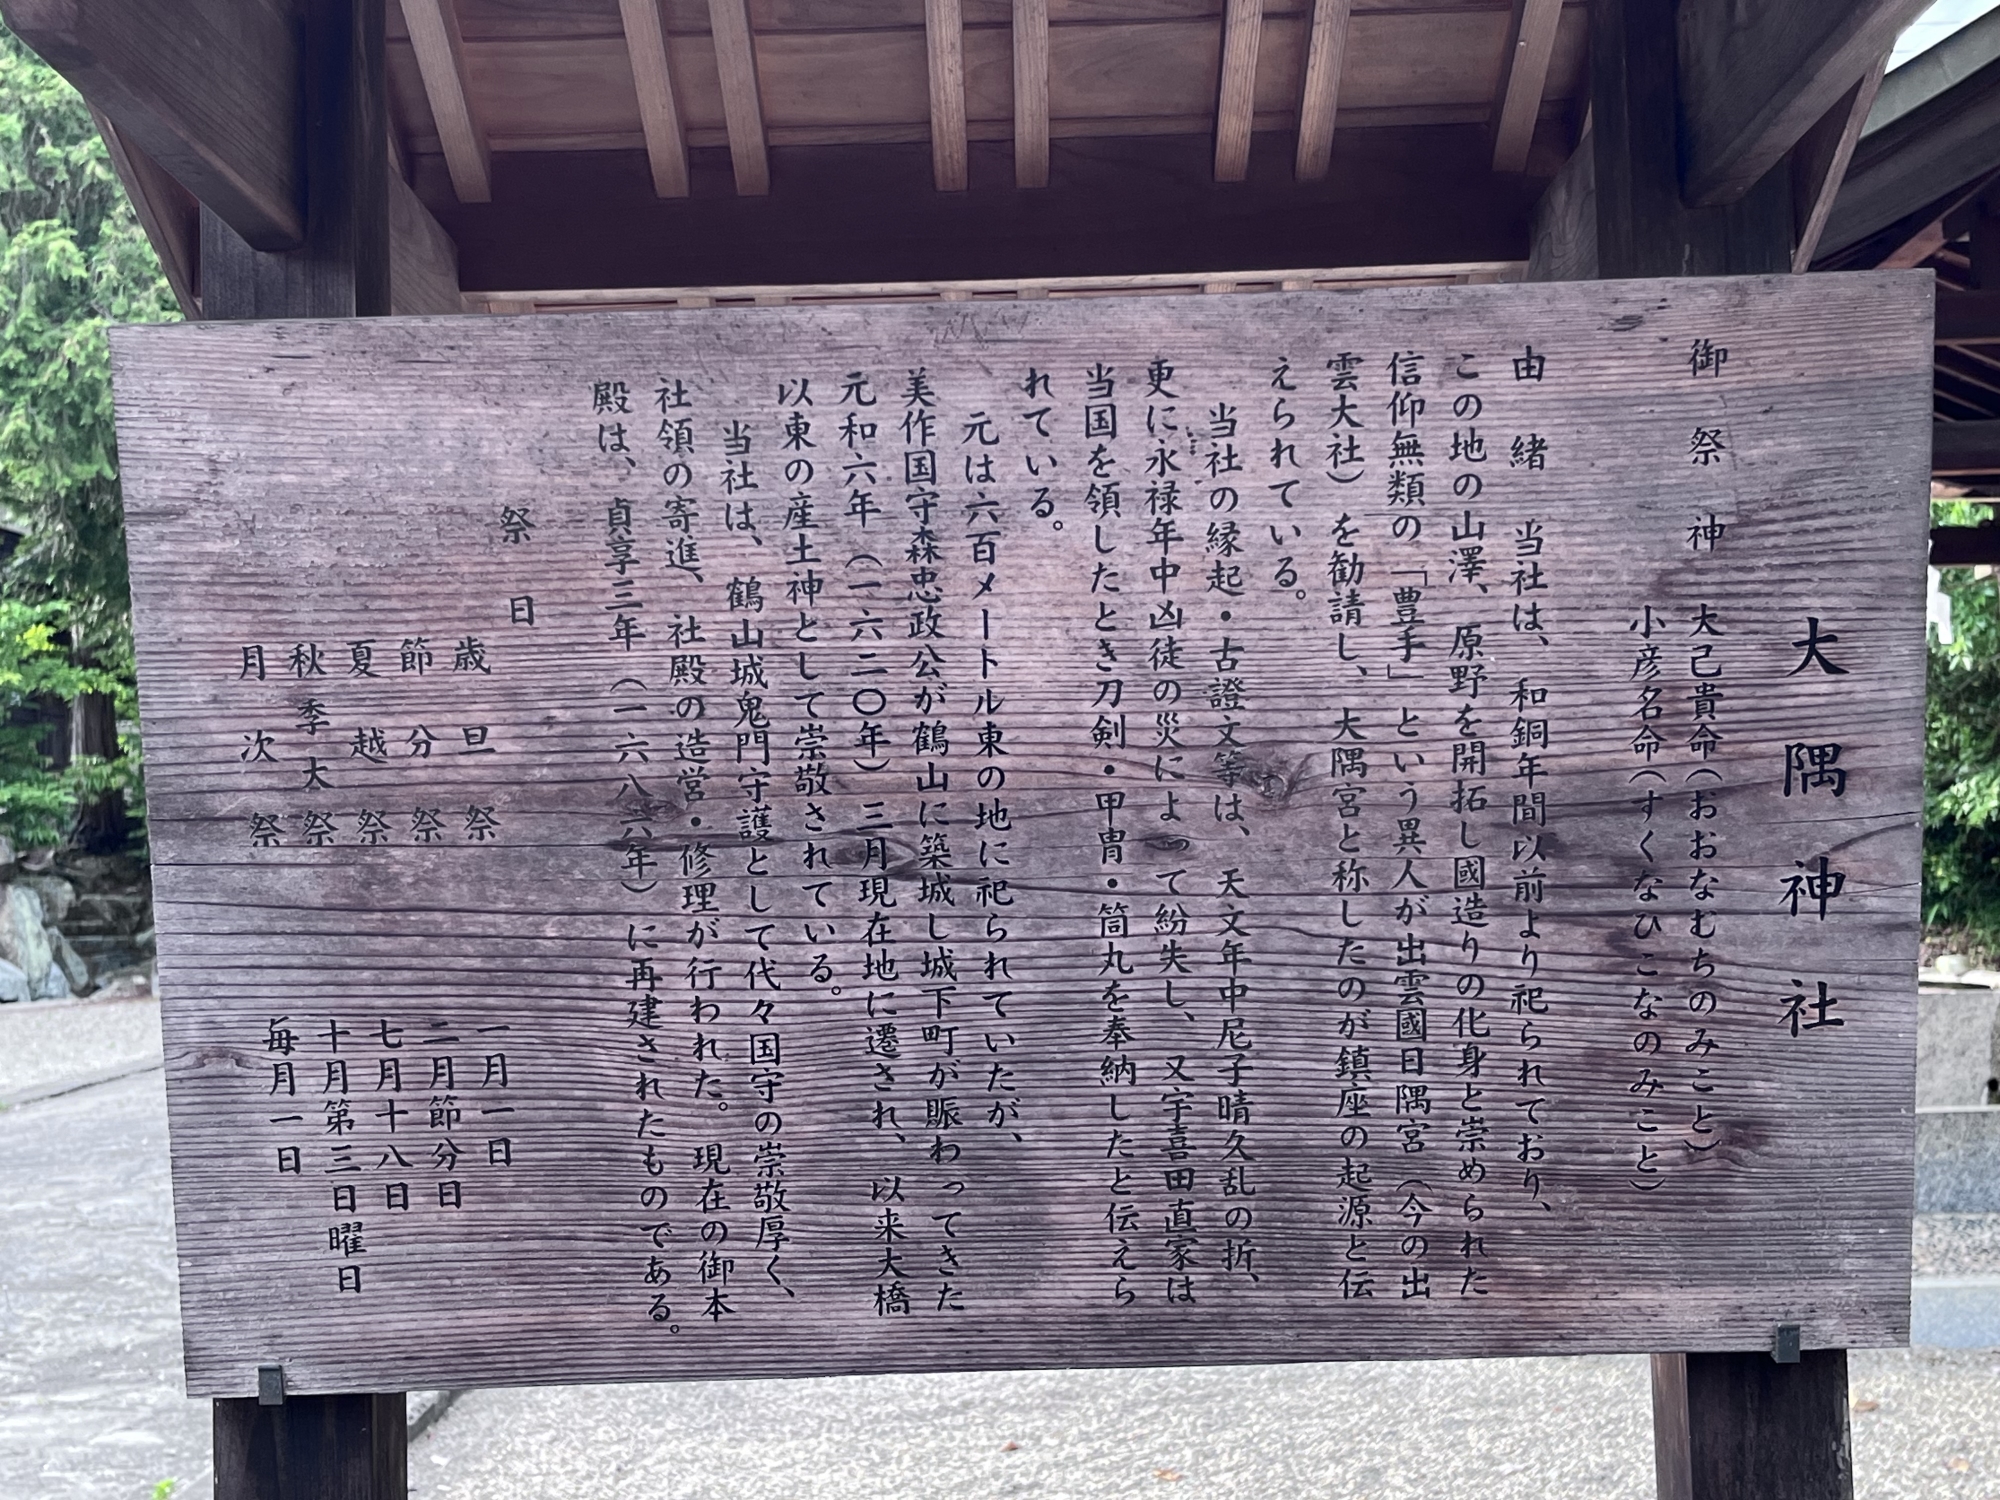 大隅神社
御祭神 大己貴命(おおなむちのみこと)
小彦名命(すくなひこなのみこと)
由緒 当社は、和銅年間以前より祀られており、
この地の山澤、原野を開拓し國造りの化身と崇められた
信仰無類の「豊手」という異人が出雲國日隅宮(今の出
雲大社)を勧請し、大隅宮と称したのが鎮座の起源と伝
えられている。
当社の縁起・古證文等は、天文年中尼子晴久乱の折、
更に永禄年中凶徒の災によって紛失し、又宇喜田直家は
当国を領したとき刀剣・甲冑・筒丸を奉納したと伝えら
れている。
元は六百メートル東の地に祀られていたが、
美作国守森忠政公が鶴山に築城し城下町が賑わってきた
元和六年(一六二〇年)三月現在地に遷され、以来大橋
以東の産土神として崇敬されている。
当社は、鶴山城鬼門守護として代々国守の崇敬厚く、
社領の寄進、社殿の造営・修理が行われた。現在の御本
殿は、貞享三年(一六八六年)に再建されたものである。
祭日
歳旦祭 一月一日
節分祭 二月節分日
夏越祭 七月十八日
秋季大祭 十月第三日曜日
月次祭 毎月一日